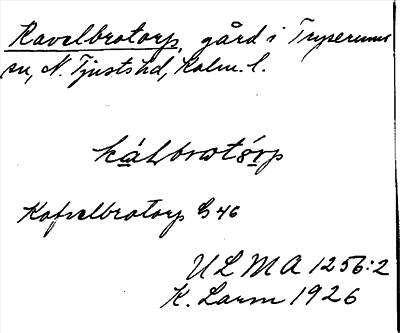 Kavelbrotorp, gård i Tryserums
sn, N. Tjusts hd, Kalm. l.
kálbrotórp
Kofvelbrotorp G 46
ULMA 1256:2
K. Larm 1926